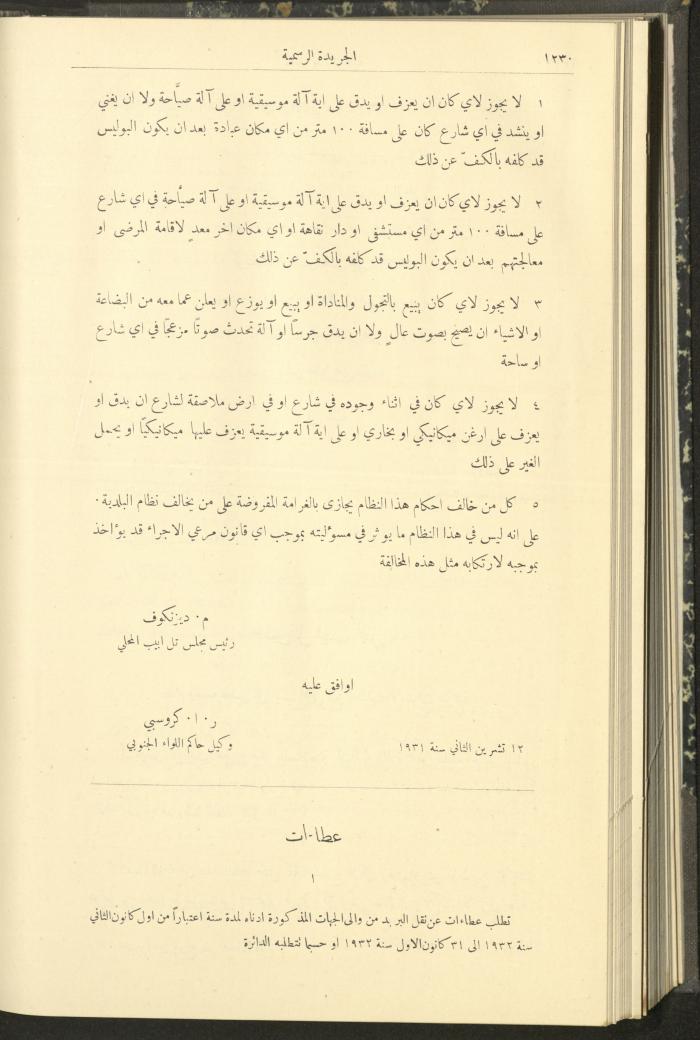 ١٢٣٠
الجريدة الرسمية
١ لا يجوز لاي كان ان يعزف او يدق على اية آلة موسيقية او على آلة صيَّاحة ولا ان يغني
او ينشد في اي شارع كان على مسافة ١٠٠ متر من اي مكان عبادة بعد ان يكون البوليس
قد كلفه بالكفّ عن ذلك
٢ لا يجوز لاي كان ان يعزف او يدق على اية آلة موسيقية او على آلة صيَّاحة في اي شارع
على مسافة ١٠٠ متر من اي مستشفى او دار نقاهة او اي مكان اخر معدٍ لاقامة المرضى او
معالجتهم بعد ان يكون البوليس قد كلفه بالكفّ عن ذلك
٣ لا يجوز لاي كان يبيع بالتجول والمناداة او يبيع او يوزع او يعلن عما معه من البضاعة
او الاشياء ان يصيح بصوت عالٍ ولا ان يدق جرسًا او آلة تحدث صوتًا مزعجًا في اي شارع
او ساحة
٤ لا يجوز لاي كان في اثناء وجوده في شارع او في ارض ملاصقة لشارع ان يدق او
يعزف على ارغن ميكانيكي او بخاري او على اية آلة موسيقية يعزف عليها ميكانيكيًا او يحمل
الغير على ذلك
٥ كل من خالف احكام هذا النظام يجازى بالغرامة المفروضة على من يخالف نظام البلدية ٠
على انه ليس في هذا النظام ما يوثر في مسؤليته بموجب اي قانون مرعي الاجراء قد يؤاخذ
بموجبه لارتكابه مثل هذه المخالفة
م ٠ ديزنكوف
رئيس مجلس تل ابيب المحلي
اوافق عليه
ر ٠ ا ٠ كروسبي
١٢ تشرين الثاني سنة ١٩٣١
وكيل حاكم اللواء الجنوبي
عطاءات
١
تطلب عطاءات عن نقل البريد من والى الجهات المذكورة ادناه لمدة سنة اعتباراً من اول كانون الثاني
سنة ١٩٣٢ الى ٣١ كانون الاول سنة ١٩٣٢ او حسبما تتطلبه الدائرة